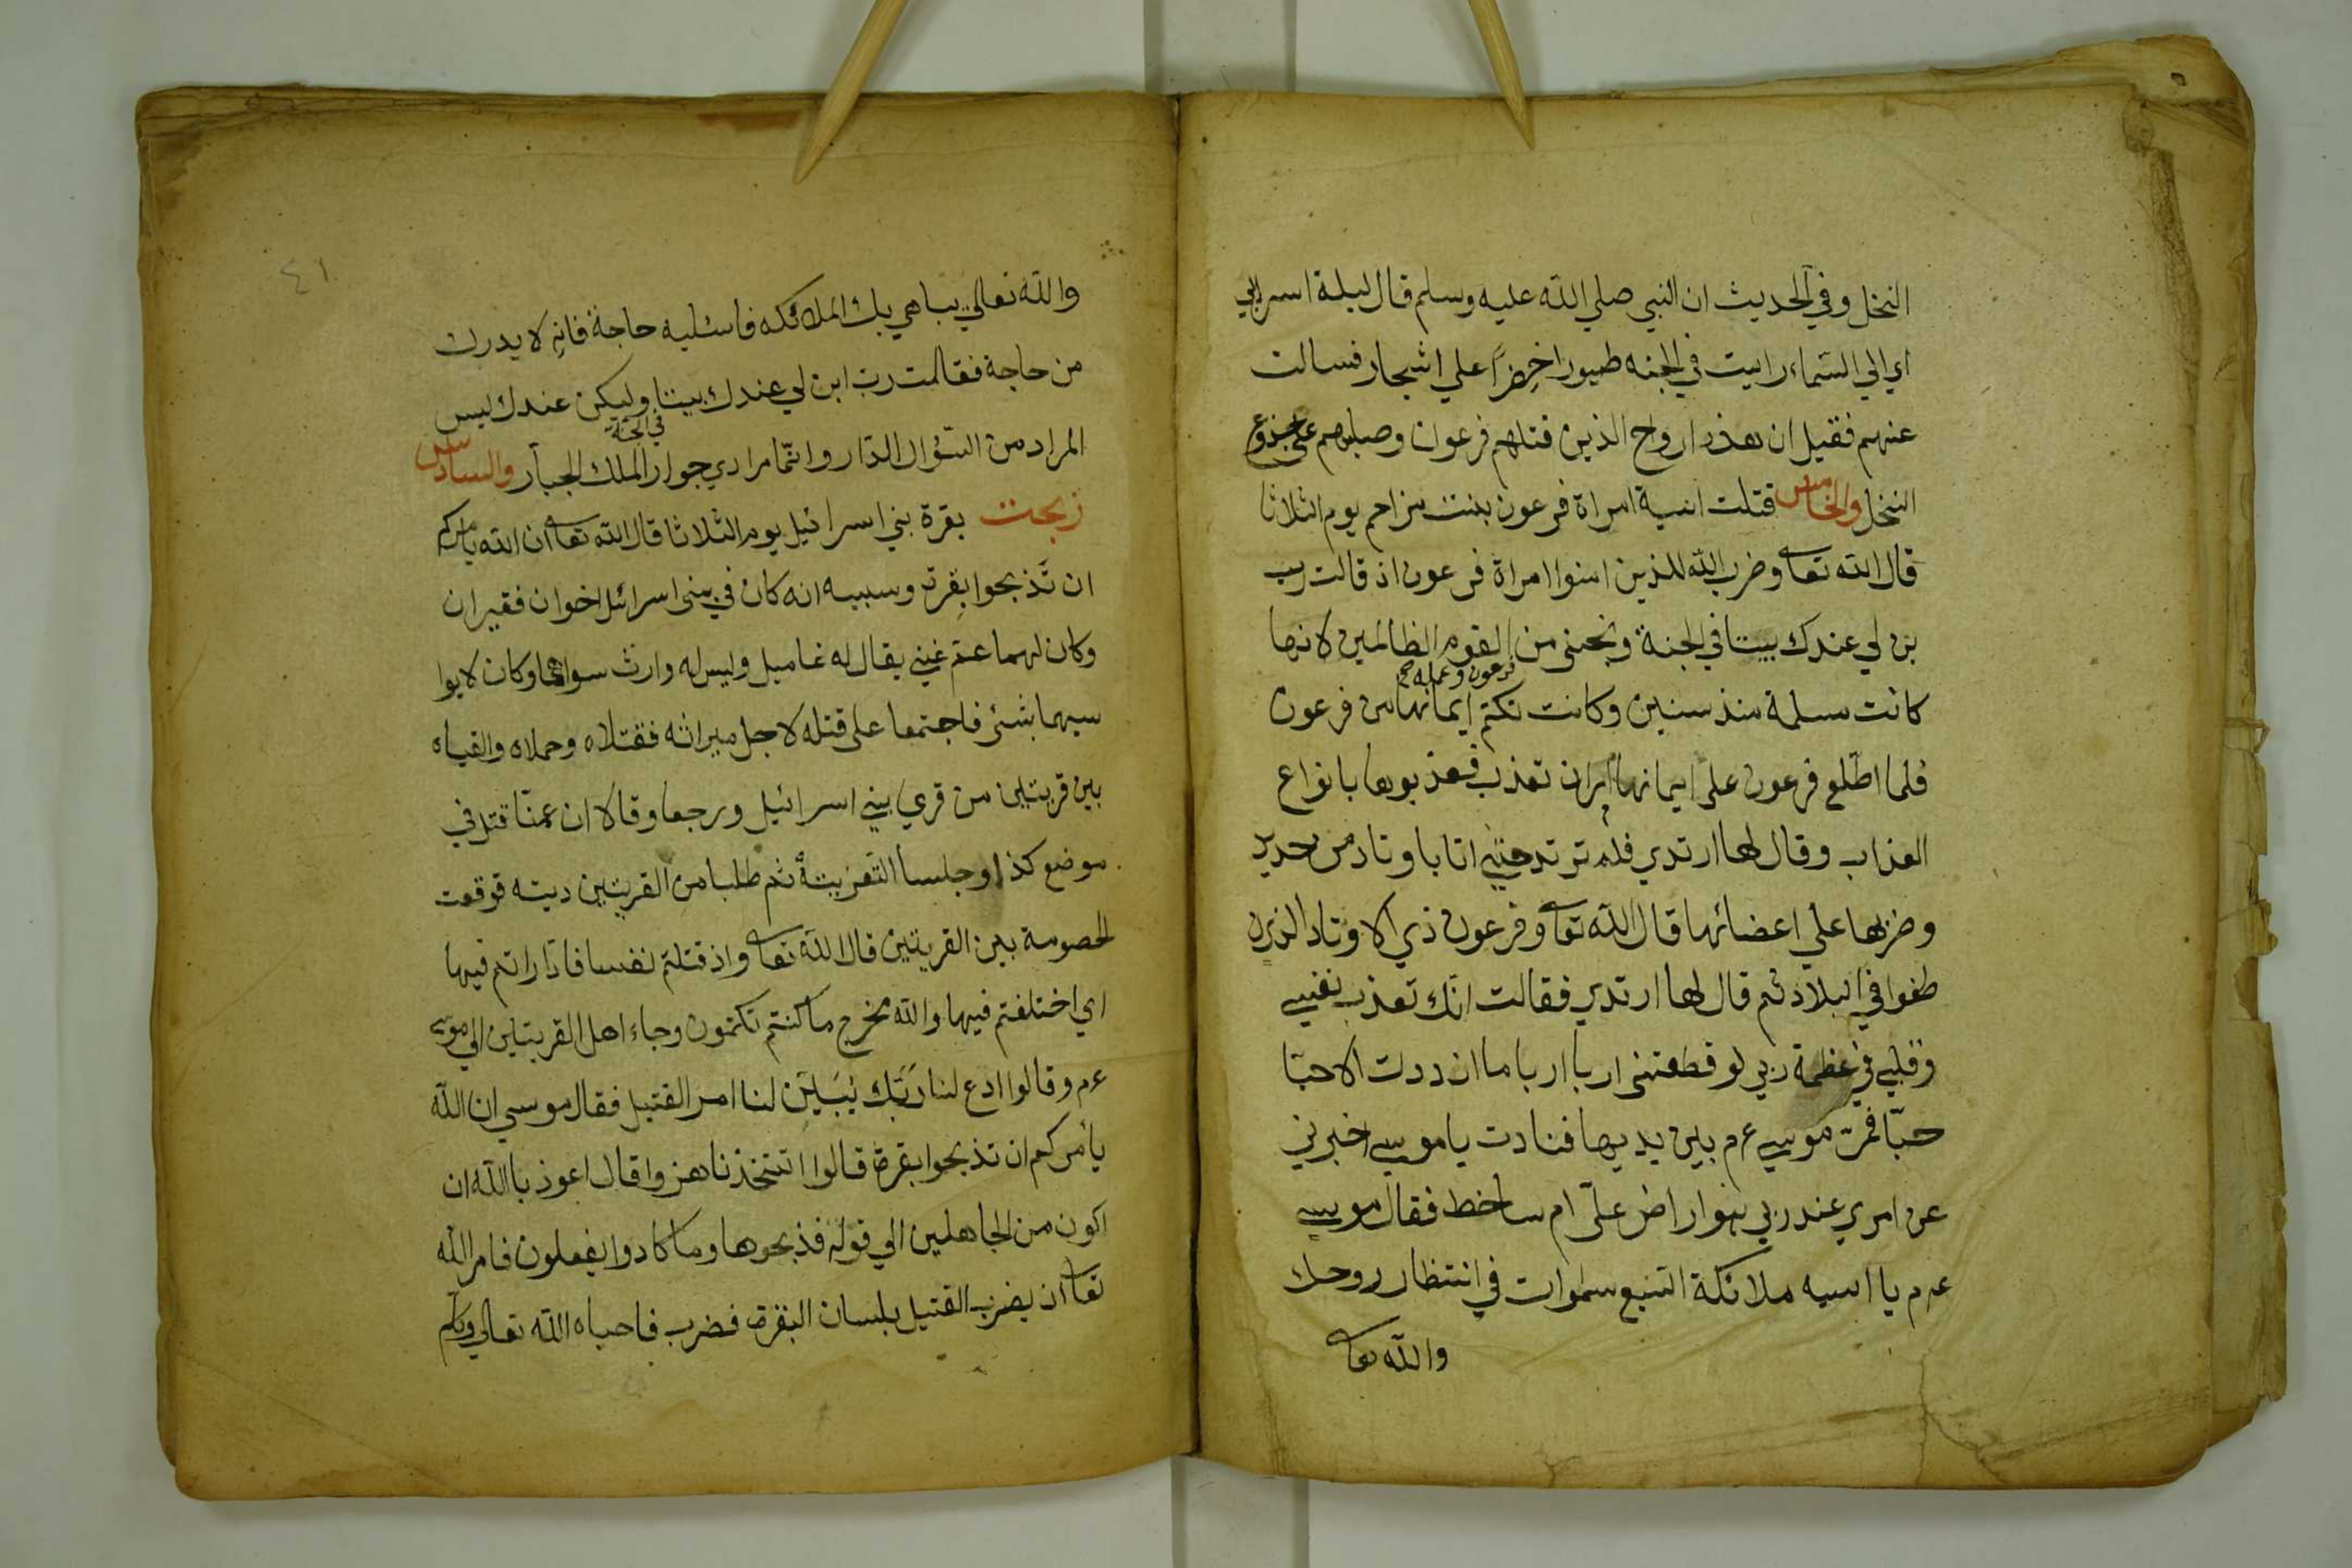 النخل وفي الحديث ان النبي صلي الله عليه وسلم قال ليلة اسري بي
اي الي السماء رايت في الجنه طيورا خضرا علي اشجار فسالت
عنهم فقيل ان هذه ارواح الذين قتلهم فرعون وصلبهم علي جذوع
النخل والخامس قتلت اسية امراة فرعون بنت مزاحم يوم الثلاثا
قال الله تعا وضرب الله للذين امنوا امراة فرعون اذ قالت رب
بن لي عندك بيتا في الجنة ونجني من القوم الظالمين لانها
فرعون وعمله صح
كانت مسلمة منذ سنين وكانت تكتم ايمانها من فرعون
فلما اطّلع فرعون علي ايمانها امر ان تعذب فعذبوها بانواع
العذاب وقال لها ارتدي فلم ترتد حتي اتا باوتاد من حديد
وضربها علي اعضائها قال الله تعا وفرعون ذي الاوتاد الذين
طغوا في البلاد ثم قال لها ارتدي فقالت انّك تعذب نفسي
وقلبي في عظمة ربي لو قطعتني اربا اربا ما ازددت الا حبّا
حبّا فمرّ موسي ع م بين يديها فنادت يا موسي اخبرني
عن امري عند ربي هو راض علّي ام ساخط فقال موسي
ع م يا اسيه ملائكة السبع سموات في انتظار روحك
والله تعا
٤١
والله تعالي يباهي بك الملائكه فاسئليه حاجة فانه لا يدرك
من حاجة فقالت رب ابن لي عندك بيتا وليكن عندك ليس
في الجنة
المراد من السّؤال الدّار وانّما مرادي جوار الملك الجبار والسادس
زبحت بقرة بني اسرائيل يوم الثلاثا قال الله تعا ان الله يامركم
ان تذبحوا بقرة وسببه انه كان في بني اسرائل اخوان فقيران
وكان لهما عم غني يقال له غاميل وليس له وارث سواهما وكان لا يوا
سيهما بشئ فاجتمعا علي قتله لاجل ميراثه فقتلاه وحملاه والقياه
بين قريتين من قري بني اسرائيل ورجعا وقالا ان عمنّا قتل في
موضع كذا وجلسا التعزيتة ثم طلبا من القريتين ديته فوقعت
لخصومة بين القريتين قال الله تعا واذ قتلتم نفسا فادّاراتم فيها
اي اختلفتم فيها والله مخرج ما كنتم تكتمون وجاء اهل القريتين الي موسي
ع م وقالوا ادع لنا رَبّك يُبَيّن لنا امر القتيل فقال موسي ان الله
يأمركم ان تذبحوا بقرة قالوا اتتخذنا هزوا قال اعوذ بالله ان
اكون من الجاهلين الي قوله فذبحوها وما كادوا يفعلون فامر الله
تعا ان يضرب القتيل بلسان البقرة فضرب فاحياه الله تعالي وتكلم